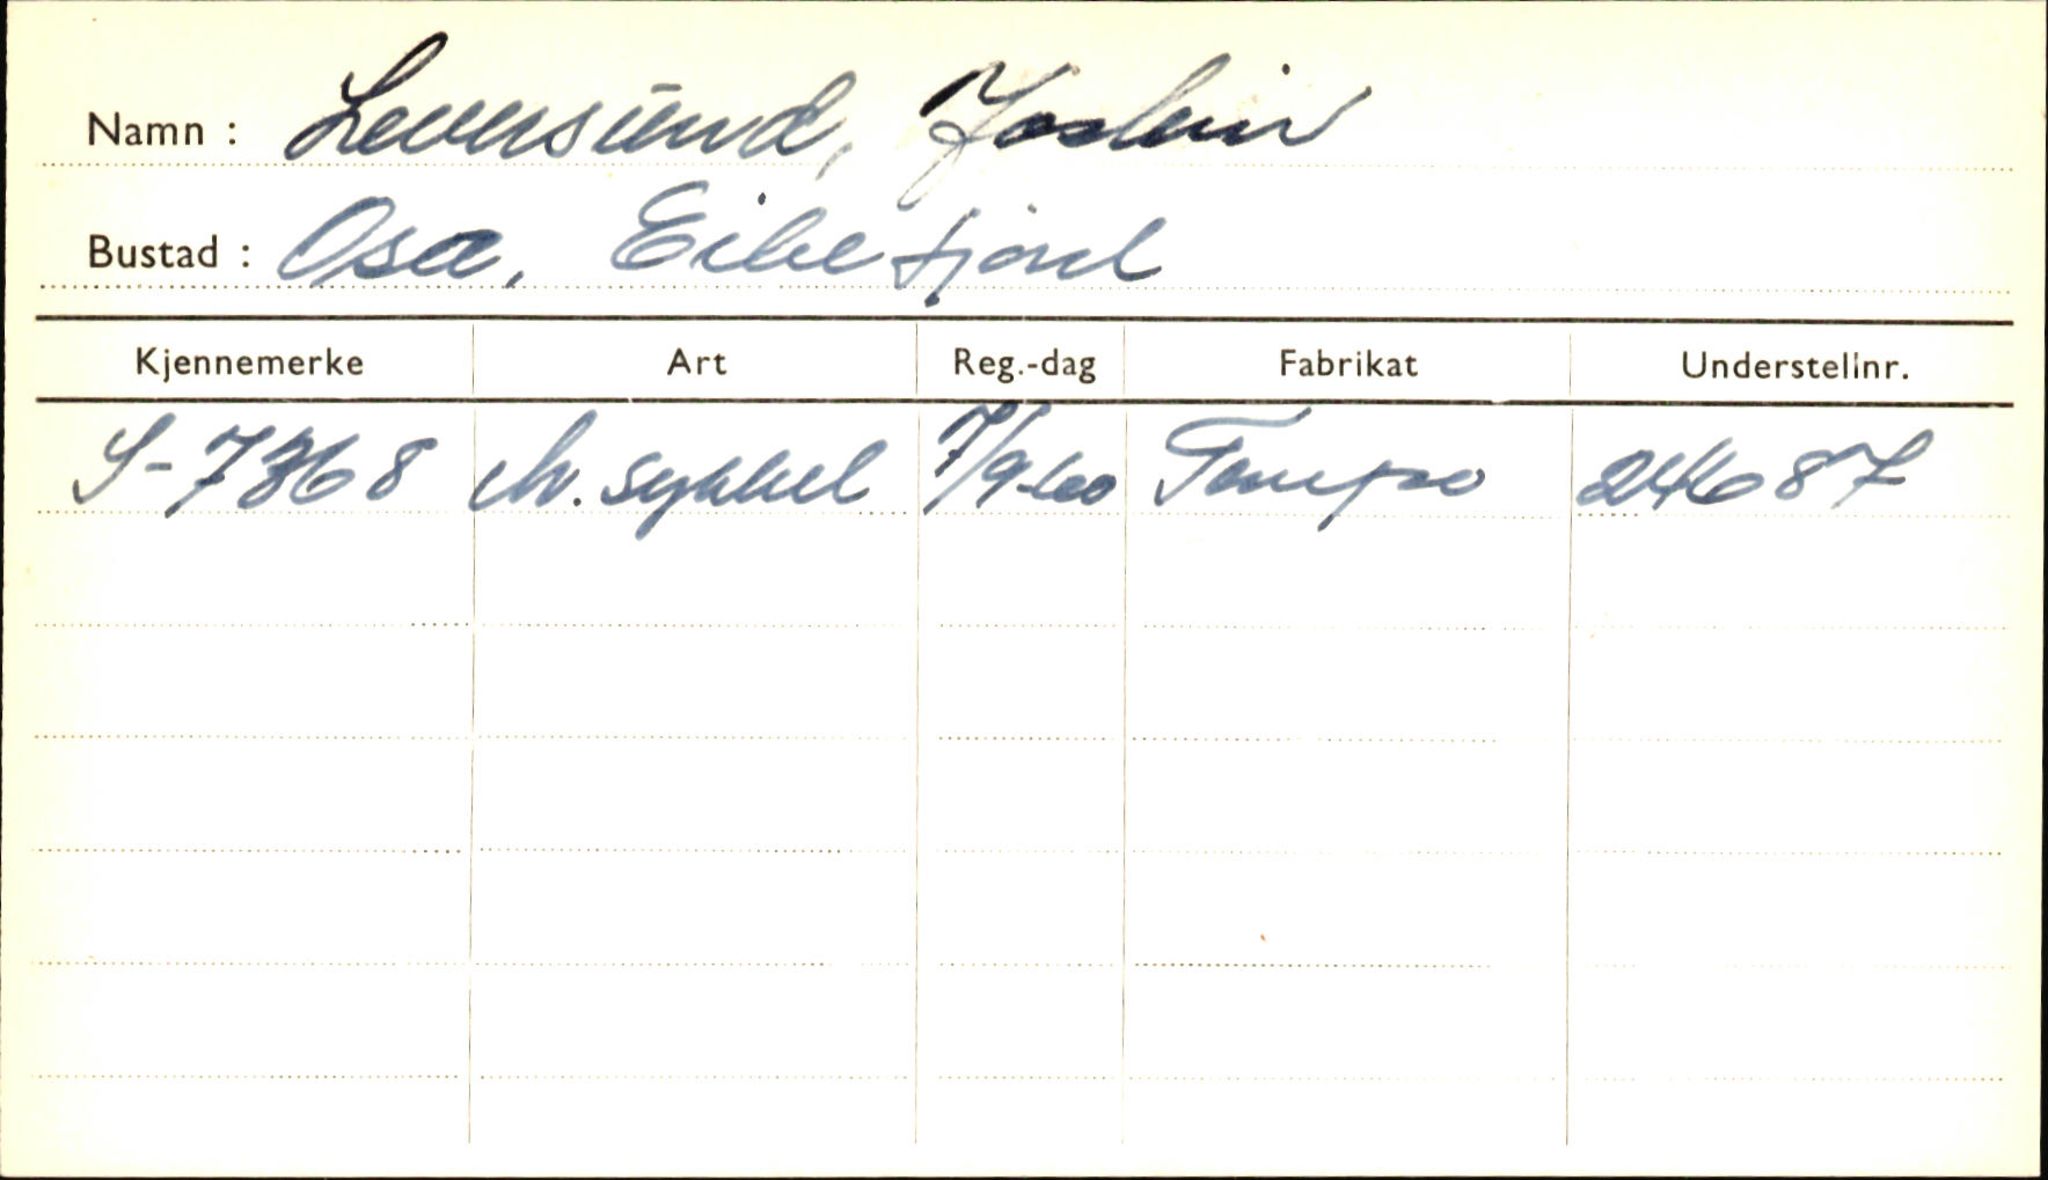 Namn : Leversund, Jostein
Bustad : Osa, Eidefjord
Kjennemerke Art Reg.-dag Fabrikat Understellnr.
S-7368 M. sykkel 7/9-60 Tempo 24687